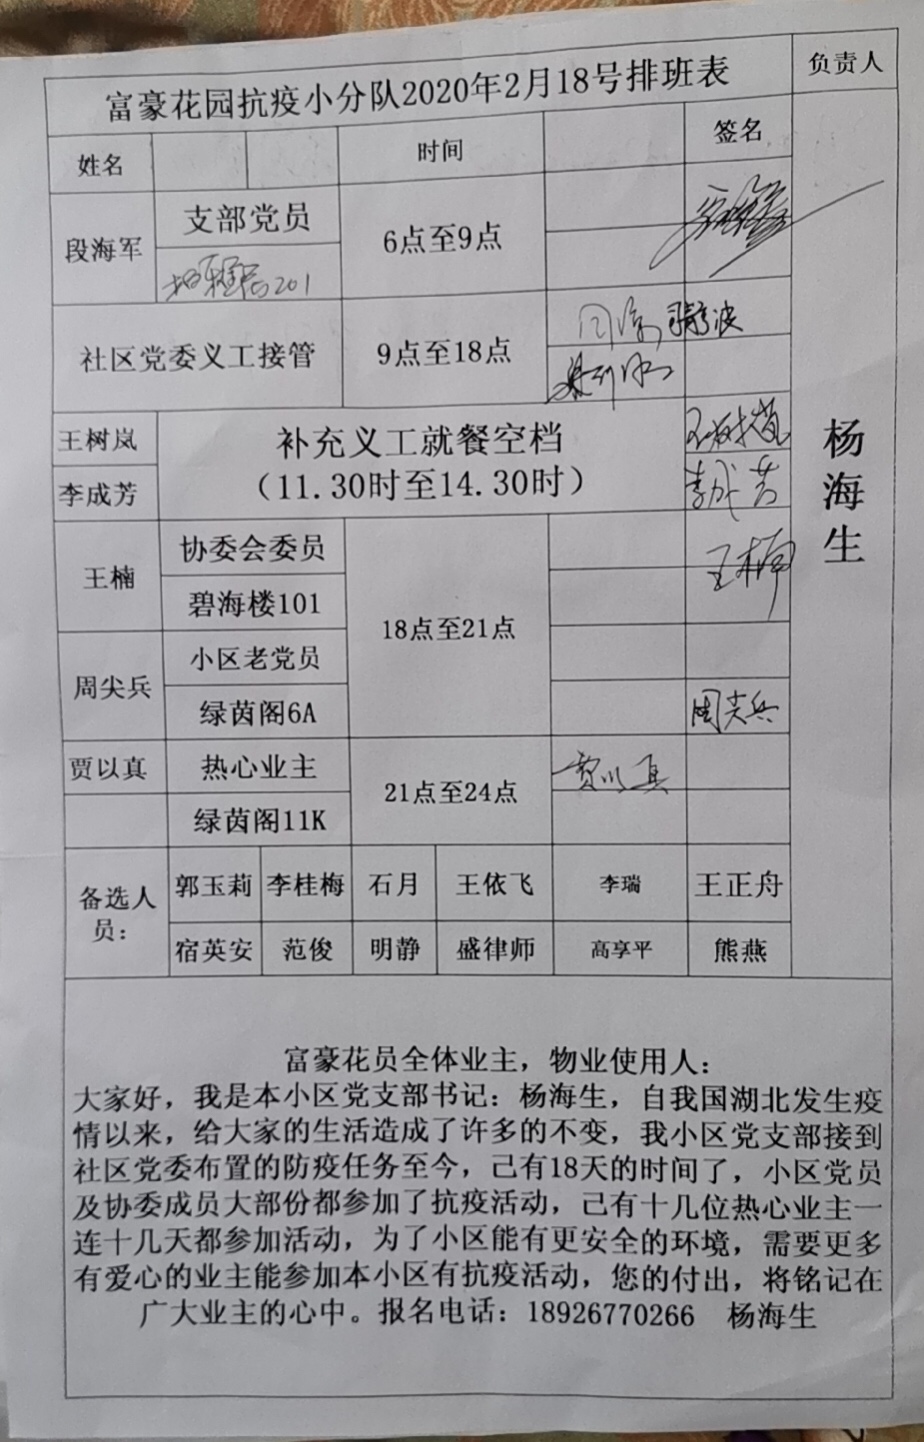 富豪花园抗疫小分队2020年2月18号排班表
负责人
姓名 时间 签名
段海军 支部党员 6点至9点
201
社区党委义工接管 9点至18点
王树岚 补充义工就餐空档 王树岚
李成芳 （11.30时至14.30时） 李成芳
杨海生
王楠 协委会委员 18点至21点 王楠
碧海楼101
周尖兵 小区老党员
绿茵阁6A 周尖兵
贾以真 热心业主 21点至24点 贾以真
绿茵阁11K
备选人员： 郭玉莉 李桂梅 石月 王依飞 李瑞 王正舟
宿英安 范俊 明静 盛律师 高享平 熊燕
富豪花员全体业主，物业使用人：
大家好，我是本小区党支部书记：杨海生，自我国湖北发生疫
情以来，给大家的生活造成了许多的不变，我小区党支部接到
社区党委布置的防疫任务至今，己有18天的时间了，小区党员
及协委成员大部份都参加了抗疫活动，己有十几位热心业主一
连十几天都参加活动，为了小区能有更安全的环境，需要更多
有爱心的业主能参加本小区有抗疫活动，您的付出，将铭记在
广大业主的心中。报名电话：18926770266 杨海生